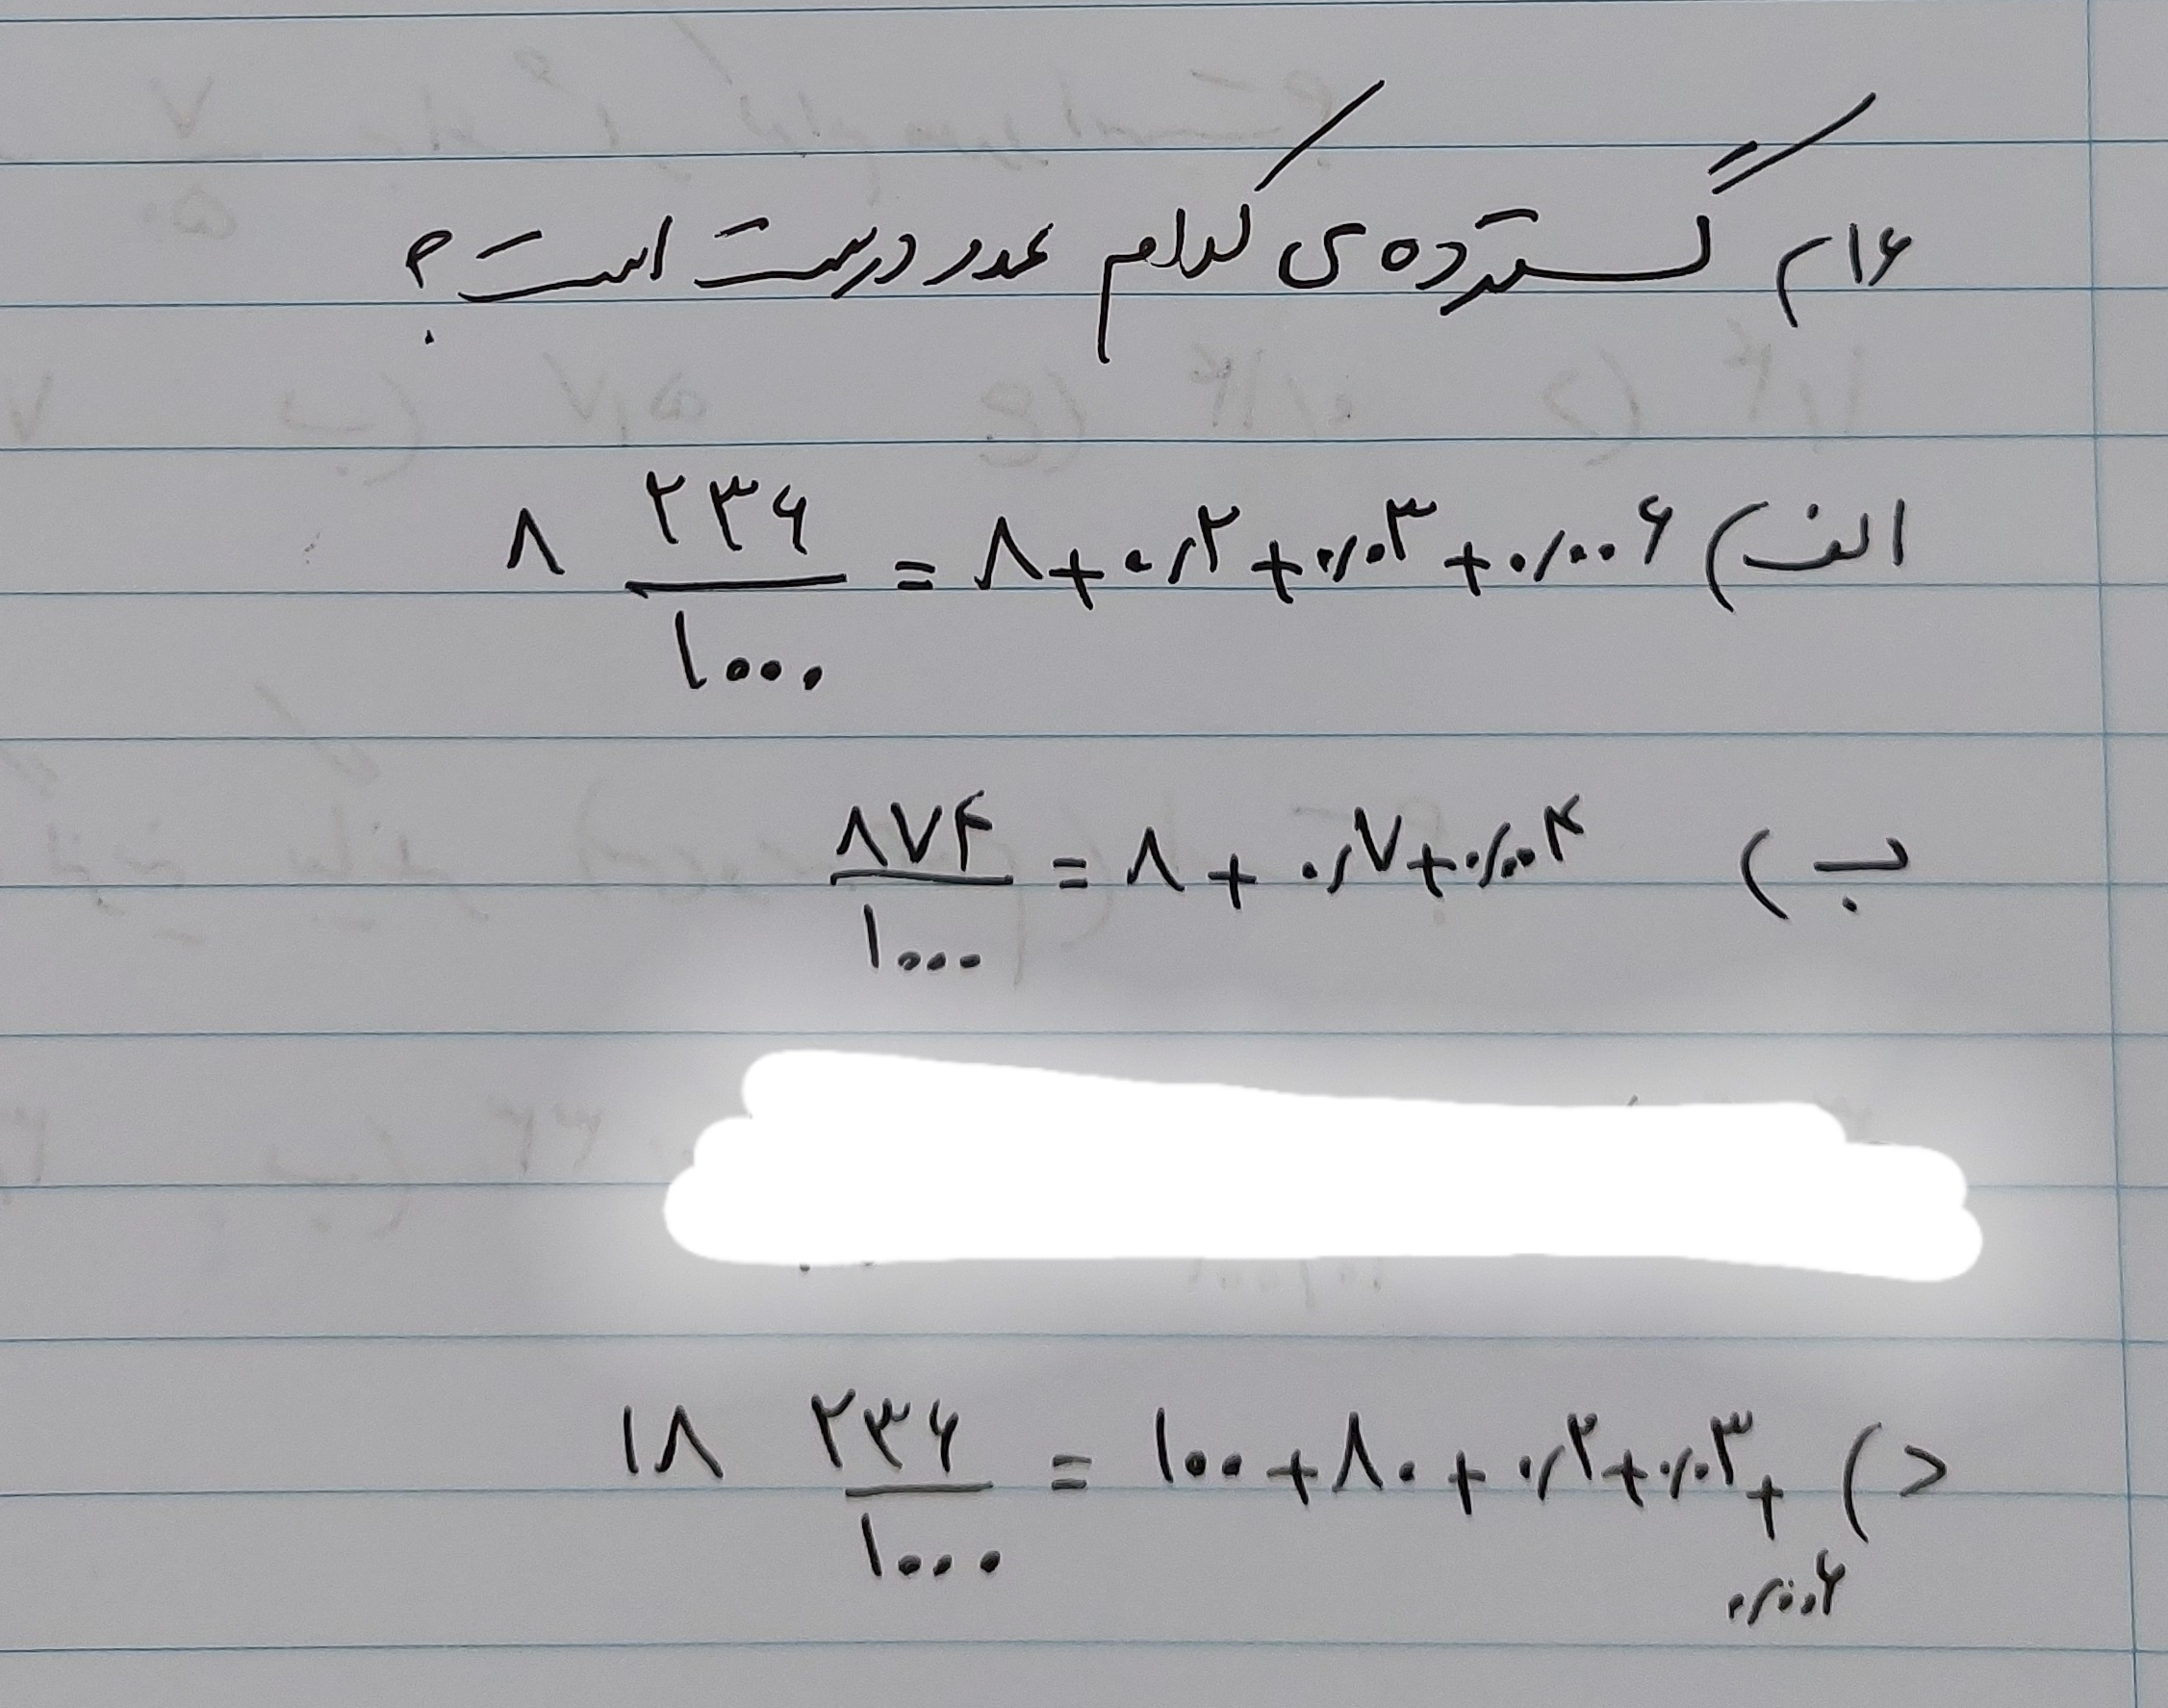 ۱۶م گسترده‌ی کدام عدد درست است؟
الف) ۸ ۲۳۶/۱۰۰۰ = ۸+۰/۲+۰/۰۳+۰/۰۰۶
ب) ۸۷۴/۱۰۰۰ = ۸+۰/۷+۰/۰۰۴
د) ۱۸ ۲۳۶/۱۰۰۰ = ۱۰۰+۸۰+۰/۲+۰/۰۳+
۰/۰۰۶